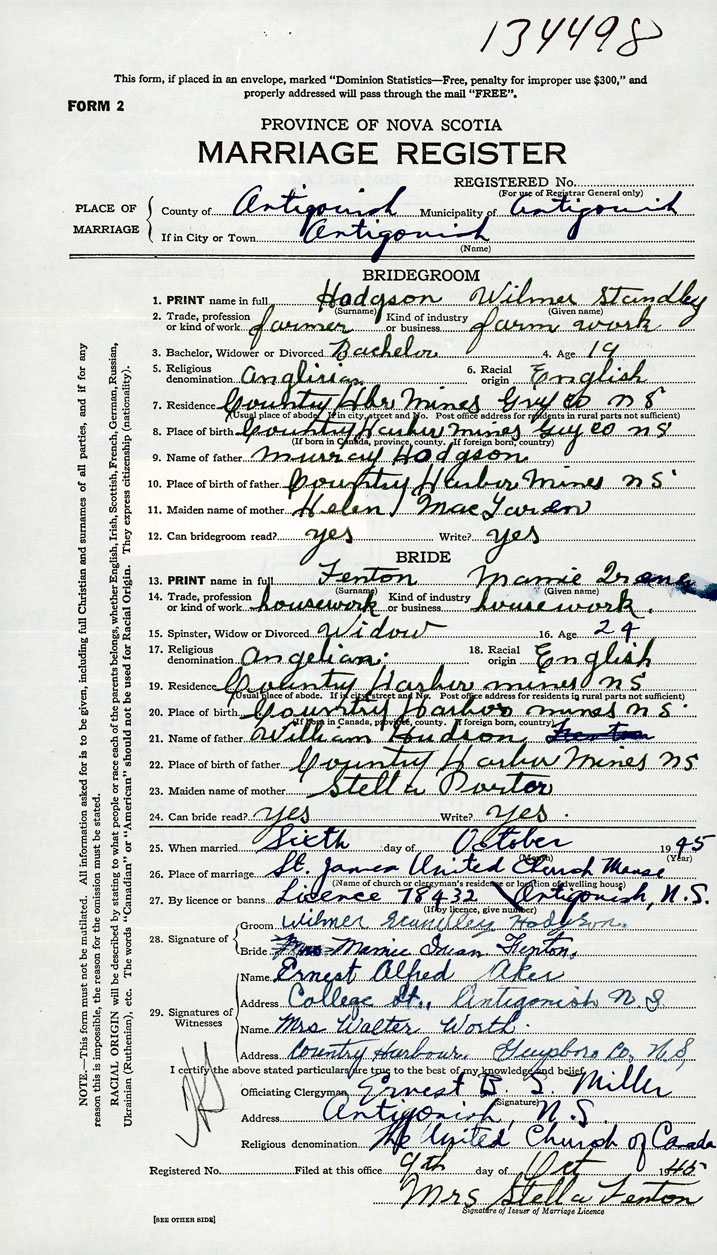 134498
This form, if placed in an envelope, marked "Dominion Statistics—Free, penalty for improper use $300," and
properly addressed will pass through the mail "FREE".
FORM 2
PROVINCE OF NOVA SCOTIA
MARRIAGE REGISTER
REGISTERED No.
(For use of Registrar General only)
PLACE OF MARRIAGE
County of Antigonish Municipality of Antigonish
If in City or Town Antigonish
(Name)
BRIDEGROOM
1. PRINT name in full Hodgson Wilmer Standley
(Surname) (Given name)
2. Trade, profession or kind of work farmer Kind of industry or business farm work
3. Bachelor, Widower or Divorced Bachelor 4. Age 19
5. Religious denomination 6. Racial origin English
7. Residence Country Hbr Mines Guy Co NS
(Usual place of abode. If in city, street and No. Post office address for residents in rural parts not sufficient)
8. Place of birth Country Harbor mines Guy Co NS
(If born in Canada, province, county. If foreign born, country)
9. Name of father Murray Hodgson
10. Place of birth of father Country Harbor Mines NS
11. Maiden name of mother Helen
12. Can bridegroom read? yes Write? yes
BRIDE
13. PRINT name in full Fenton Mamie Irene
(Surname) (Given name)
14. Trade, profession or kind of work housework Kind of industry or business housework.
15. Spinster, Widow or Divorced Widow 16. Age 24
17. Religious denomination angelian. 18. Racial origin English
19. Residence Country Harbor mines NS
(Usual place of abode. If in city street and No. Post office address for residents in rural parts not sufficient)
20. Place of birth Country Harbor mines NS.
(If born in Canada, province, county. If foreign born, country)
21. Name of father William Hudson Fenton
22. Place of birth of father Country Harbor Mines NS
23. Maiden name of mother Stella Porter
24. Can bride read? yes Write? yes.
25. When married Sixth day of October 1945
(Month) (Year)
26. Place of marriage St. James United Church Manse
(Name of church or clergyman's residence or location of dwelling house)
27. By licence or banns Licence 78432 Antigonish, N.S.
(If by licence, give number)
28. Signature of
Groom Wilmer Standley Hodgson.
Bride Mrs Mamie Fenton.
29. Signatures of Witnesses
Name Ernest Alfred Aker
Address College St., Antigonish N.S.
Name Mrs Walter Worth.
Address Country Harbour. Guysboro Co, N.S,
I certify the above stated particulars are true to the best of my knowledge and belief.
Officiating Clergyman Ernest B. S. Miller
(Signature)
Address Antigonish, N.S
Religious denomination The United Church of Canada
Registered No. Filed at this office 9th day of Oct 1945
Mrs Stella Fenton
Signature of Issuer of Marriage Licence
[SEE OTHER SIDE]
NOTE.—This form must not be mutilated. All information asked for is to be given, including full Christian and surnames of all parties, and if for any
reason this is impossible, the reason for the omission must be stated.
RACIAL ORIGIN will be described by stating to what people or race each of the parents belongs, whether English, Irish, Scottish, French, German, Russian,
Ukrainian (Ruthenian), etc. The words "Canadian" or "American" should not be used for Racial Origin. They express citizenship (nationality).